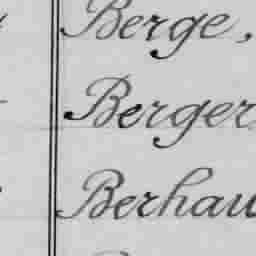 Berge,
Berger
Berhau